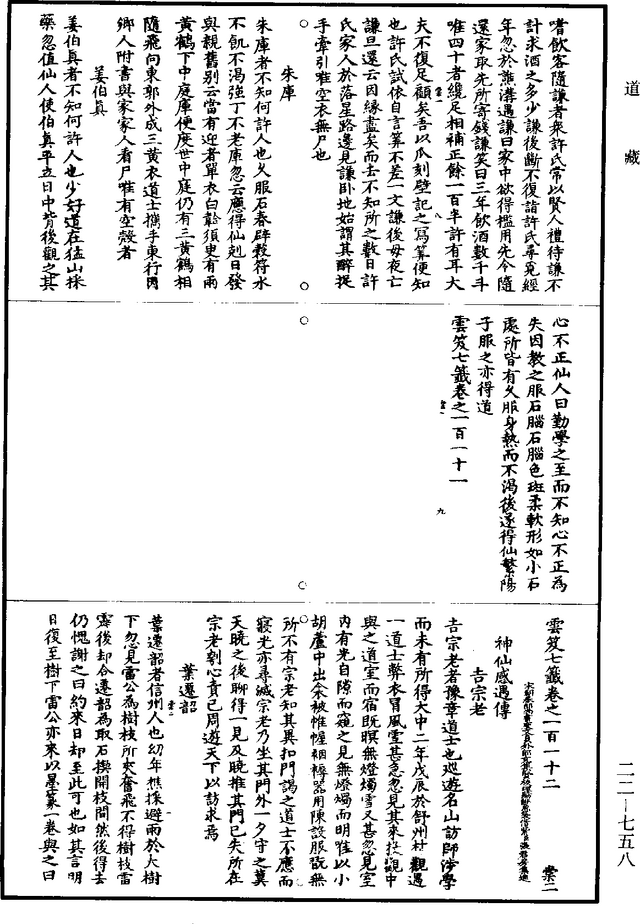 道藏
嗜飲客隨謙者衆許氏常以賢人禮待謙不
計求酒之多少謙後斷不復詣許氏尋覓經
年忽於譙溝遇謙曰家中欲得檻用先令隨
還家取先所寄錢謙笑曰三年飲酒數千斗
唯四十者纏足相補正餘一百半許有耳大
夫不復足顧矣吾以爪刻壁記之寫筭便知
也許氏試依自言筭不差一文謙後母夜亡
謙旦還云因緣盡矣而去不知所之數日許
氏家人於落星路邊見謙卧地始謂其醉捉
手牽引唯空衣無尸也
朱庫
朱庫者不知何許人也久服石春辟穀符水
不飢不渴強丁不老庫忽云應得仙剋日發
與親舊别云當有迎者單衣白䩫須臾有兩
黄鶴下中庭庫便度世中庭仍有三黄鶴相
隨飛向東郭外成三黄衣道士攜手東行因
鄉人附書與家家人看尸唯有空殻者
姜伯真
姜伯真者不知何許人也少好道在猛山採
藥忽值仙人使伯真平立日中背後觀之其
心不正仙人曰勤學之至而不知心不正為
失因教之服石腦石腦色斑柔軟形如小石
處所皆有久服身熱而不渴後遂得仙繁陽
子服之亦得道
雲笈七籤卷之一百一十一
九
雲笈七籤卷之一百一十二
棠二
神仙感遇傳
吉宗老
吉宗老者豫章道士也巡遊名山訪師涉學
而未有所得大中二年戊辰於舒州村觀遇
一道士弊衣冒風雪甚急忽見其來投觀中
與之道室而宿既暝無燈燭雪又甚忽見室
内有光自隙而窺之見無燈燭而明惟以小
胡蘆中出衾被帷幄裀褥器用陳設服翫無
所不有宗老知其異扣門謁之道士不應而
寢光亦尋滅宗老乃坐其門外一夕守之冀
天曉之後聊得一見及曉推其門已失所在
宗老刳心責己周遊天下以訪求焉
葉遷韶
葉遷韶者信州人也幼年樵採避雨於大樹
下忽見雷公為樹枝所夾奮飛不得樹枝雷
霹後却合遷韶為取石揳開枝間然後得去
仍愧謝之曰約來日却至此可也如其言明
日復至樹下雷公亦來以墨篆一卷與之曰
二二—七五八